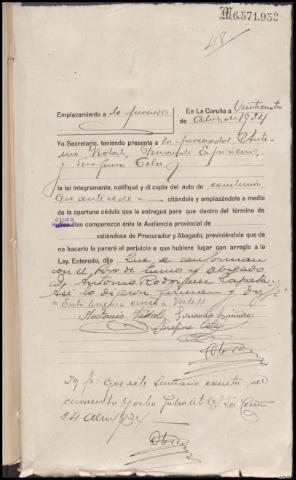 M.6.571.952
48
Emplazamiento a lo procesos
En La Coruña a Veinticuatro
de Abril de 1934
Yo Secretario, teniendo presente a los procesados Anto-
nio Vidal, Fernando Espiñeiro,
y Serafina Cela
la leí íntegramente, notifiqué y di copia del auto de conclusión
que antecede citándole y emplazándole a medio
de la oportuna cédula que le entregué para que dentro del término de
cinco
días comparezca ante la Audiencia provincial de
valiéndose de Procurador y Abogado, previniéndole que de
no hacerlo le parará el perjuicio a que hubiere lugar con arreglo a la
Ley. Enterado, dijo Que se conforman
con el Pror. de turno y abogado
D. Antonio Rodriguez
Así lo dijeron firman y doy fe
Antonio Vidal Fernando Espiñeiro
Serafina Cela
Doy fe: que este sumario consta de
cuarenta y ocho folios útiles. La Coruña
24 Abril 934